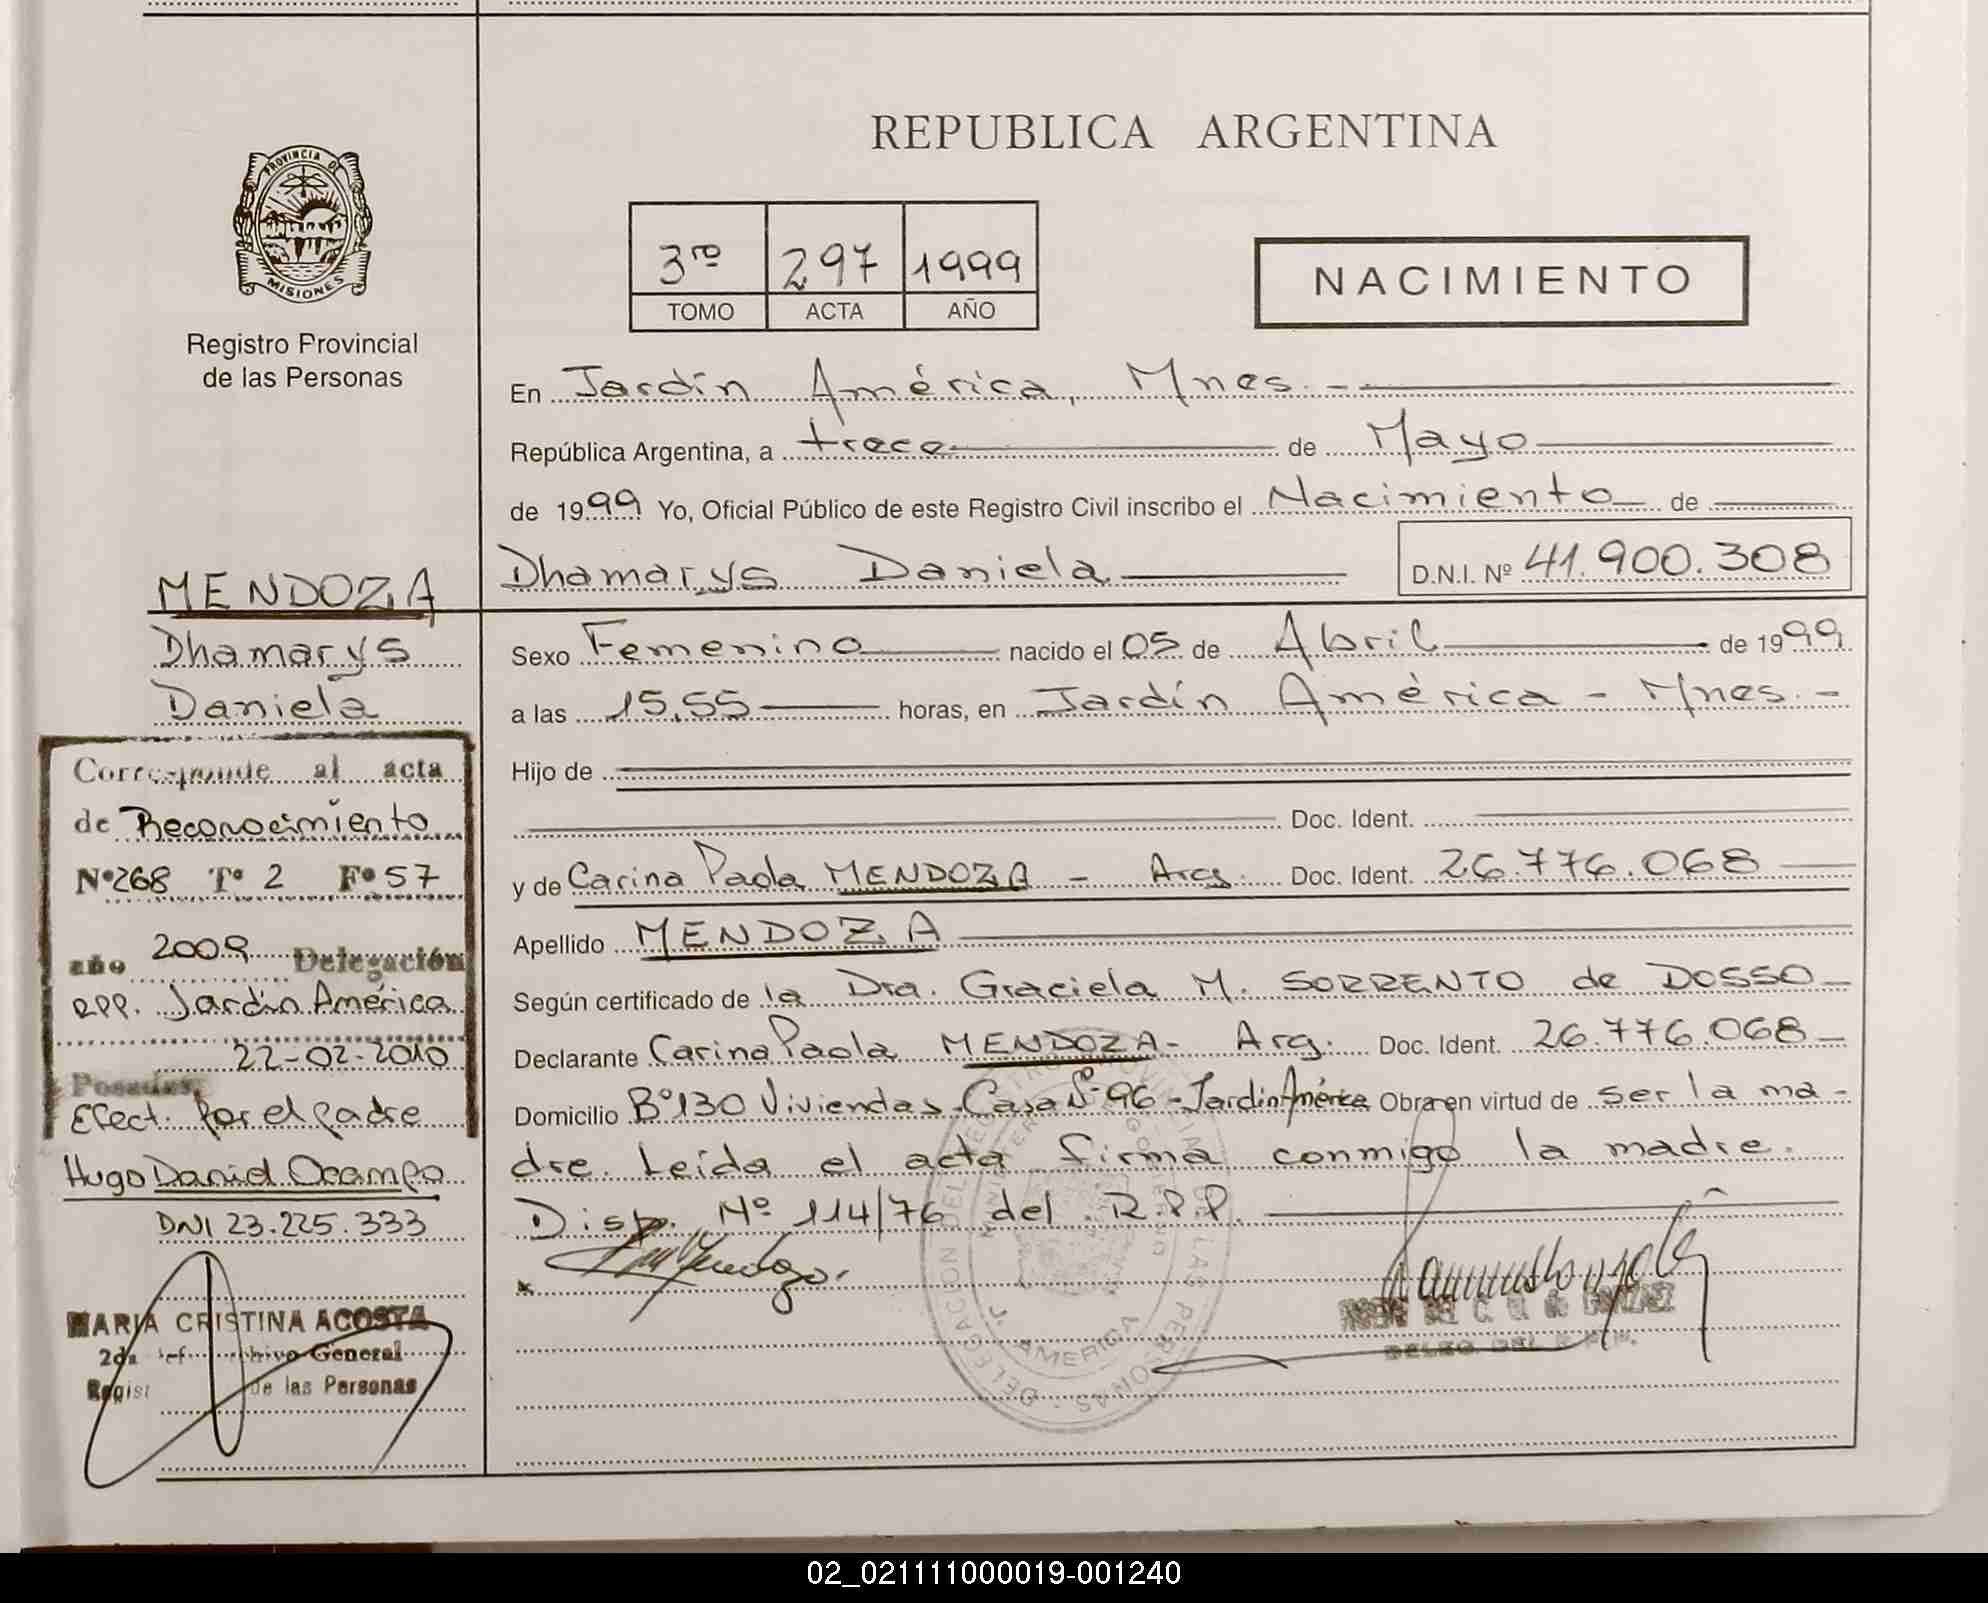 REPUBLICA ARGENTINA
PROVINCIA DE
MISIONES
Registro Provincial
de las Personas
3ro 297 1999
TOMO ACTA AÑO
NACIMIENTO
En Jardín América, Mnes.-
República Argentina, a trece de Mayo
de 1999 Yo, Oficial Público de este Registro Civil inscribo el Nacimiento de
Dhamarys Daniela D.N.I. Nº 41.900.308
Sexo Femenino nacido el 05 de Abril de 1999
a las 15,55 horas, en Jardín América - Mnes.-
Hijo de
Doc. Ident.
y de Carina Paola MENDOZA - Arg. Doc. Ident. 26.776.068
Apellido MENDOZA
Según certificado de la Dra. Graciela M. SORRENTO de DOSSO
Declarante Carina Paola MENDOZA- Arg. Doc. Ident. 26.776.068
Domicilio Bº130 Viviendas-Casa Nº 96-Jardin América Obra en virtud de ser la ma-
dre. Leída el acta firma conmigo la madre.
Disp. Nº 114/76 del R.P.P.
MENDOZA
Dhamarys
Daniela
Corresponde al acta
de Reconocimiento
Nº268 Tº 2 Fº 57
año 2009 Delegación
RPP. Jardín América
22-02-2010
Posadas,
Efect. por el padre
Hugo Daniel Ocampo
DNI 23.225.333
MARIA CRISTINA ACOSTA
2da Jef Archivo General
Regist de las Personas
AMERICA
02_021111000019-001240